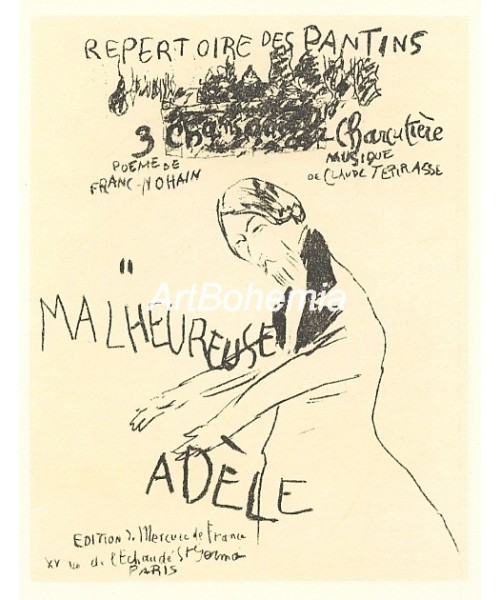 REPERTOIRE DES PANTINS
3 Chansons à la Charcutière
POEME DE
FRANC-NOHAIN
MUSIQUE
DE CLAUDE TERRASSE
II
MALHEUREUSE
ADÈLE
ArtBohemia
EDITION du Mercure de France
XV rue de l'Echaudé St Germain
PARIS